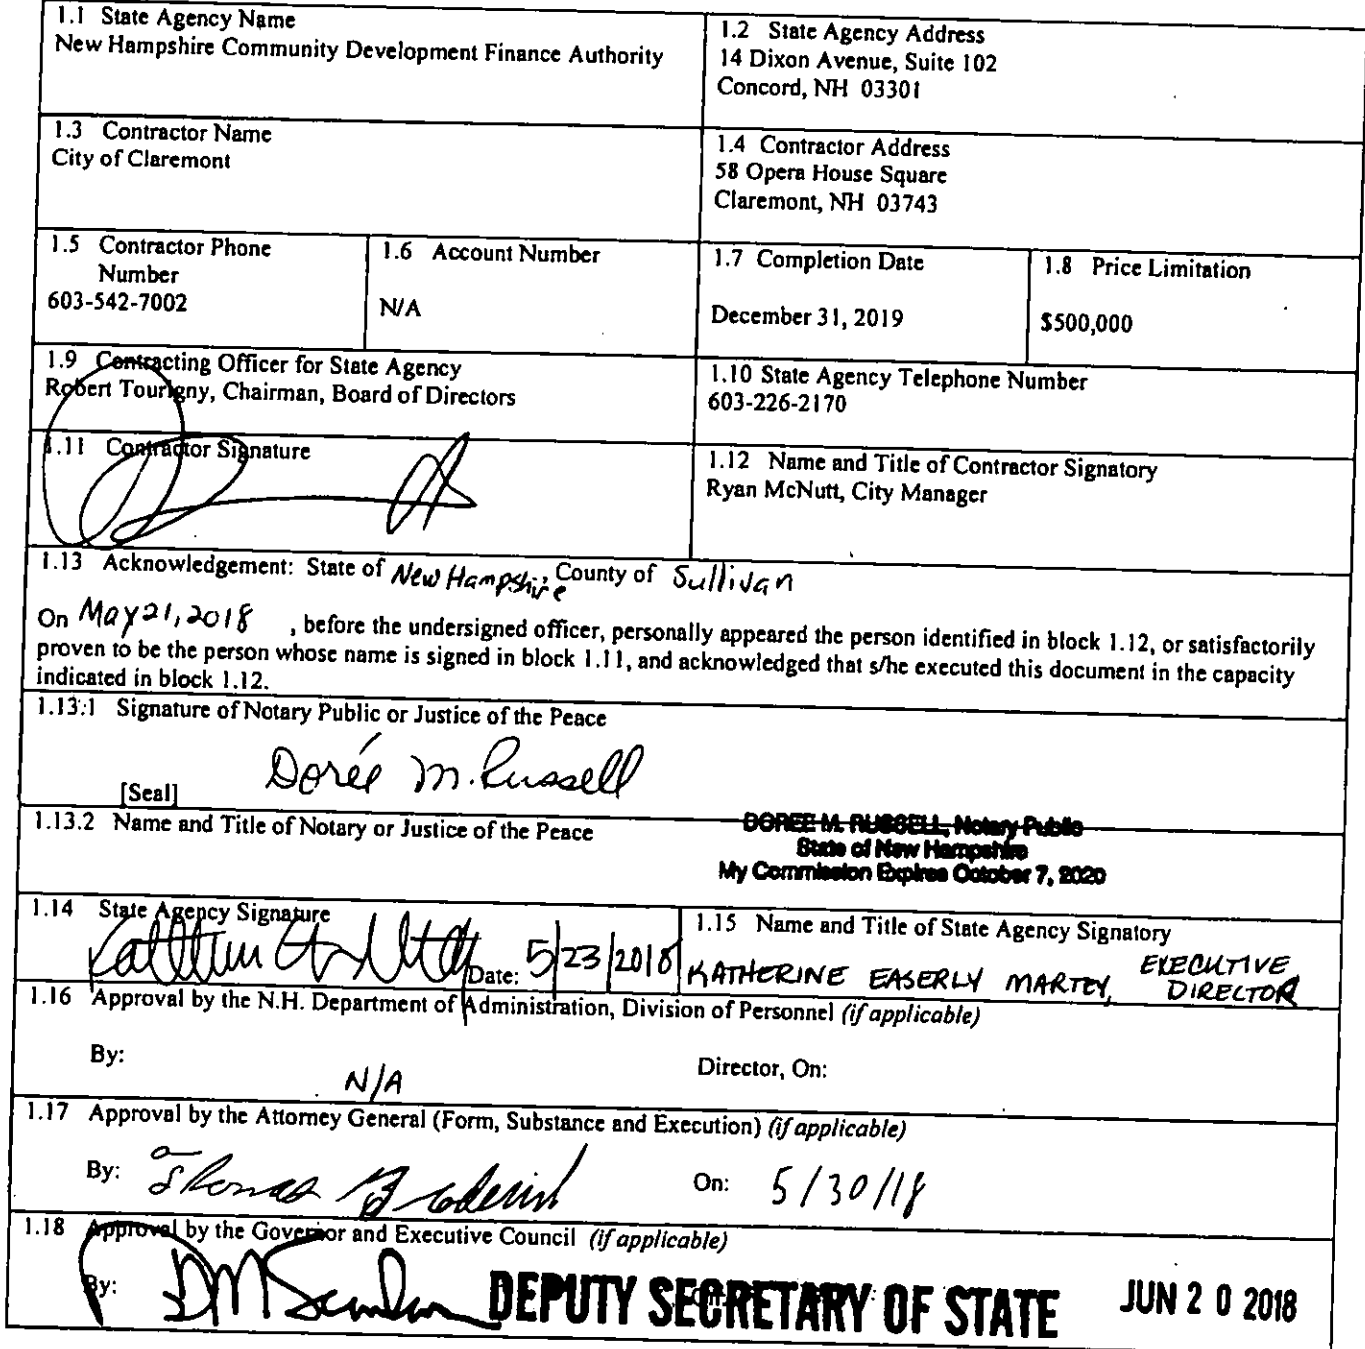 1.1 State Agency Name
New Hampshire Community Development Finance Authority
1.2 State Agency Address
14 Dixon Avenue, Suite 102
Concord, NH 03301
1.3 Contractor Name
City of Claremont
1.4 Contractor Address
58 Opera House Square
Claremont, NH 03743
1.5 Contractor Phone
Number
603-542-7002
1.6 Account Number
N/A
1.7 Completion Date
December 31, 2019
1.8 Price Limitation
$500,000
1.9 Contracting Officer for State Agency
Robert Tourigny, Chairman, Board of Directors
1.10 State Agency Telephone Number
603-226-2170
1.11 Contractor Signature
1.12 Name and Title of Contractor Signatory
Ryan McNutt, City Manager
1.13 Acknowledgement: State of New Hampshire, County of Sullivan
On May 21, 2018 , before the undersigned officer, personally appeared the person identified in block 1.12, or satisfactorily
proven to be the person whose name is signed in block 1.11, and acknowledged that s/he executed this document in the capacity
indicated in block 1.12.
1.13.1 Signature of Notary Public or Justice of the Peace
Dorée M. Russell
[Seal]
1.13.2 Name and Title of Notary or Justice of the Peace
DOREE M. RUSSELL, Notary Public
State of New Hampshire
My Commission Expires October 7, 2020
1.14 State Agency Signature
Date: 5/23/2018
1.15 Name and Title of State Agency Signatory
KATHERINE EASERLY MARTEY, EXECUTIVE DIRECTOR
1.16 Approval by the N.H. Department of Administration, Division of Personnel (if applicable)
By:
N/A
Director, On:
1.17 Approval by the Attorney General (Form, Substance and Execution) (if applicable)
By: On: 5/30/18
1.18 Approval by the Governor and Executive Council (if applicable)
By: DEPUTY SECRETARY OF STATE JUN 20 2018